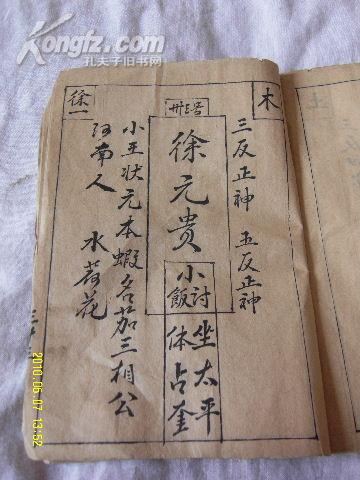 Kongfz.com
孔夫子旧书网
木
三反正神 五反正神
卅三号
徐元贵
小讨饭
坐太平
体占奎
徐一
小王状元本蝦名茄三相公
河南人 水荷花
2010.06.07 13:52